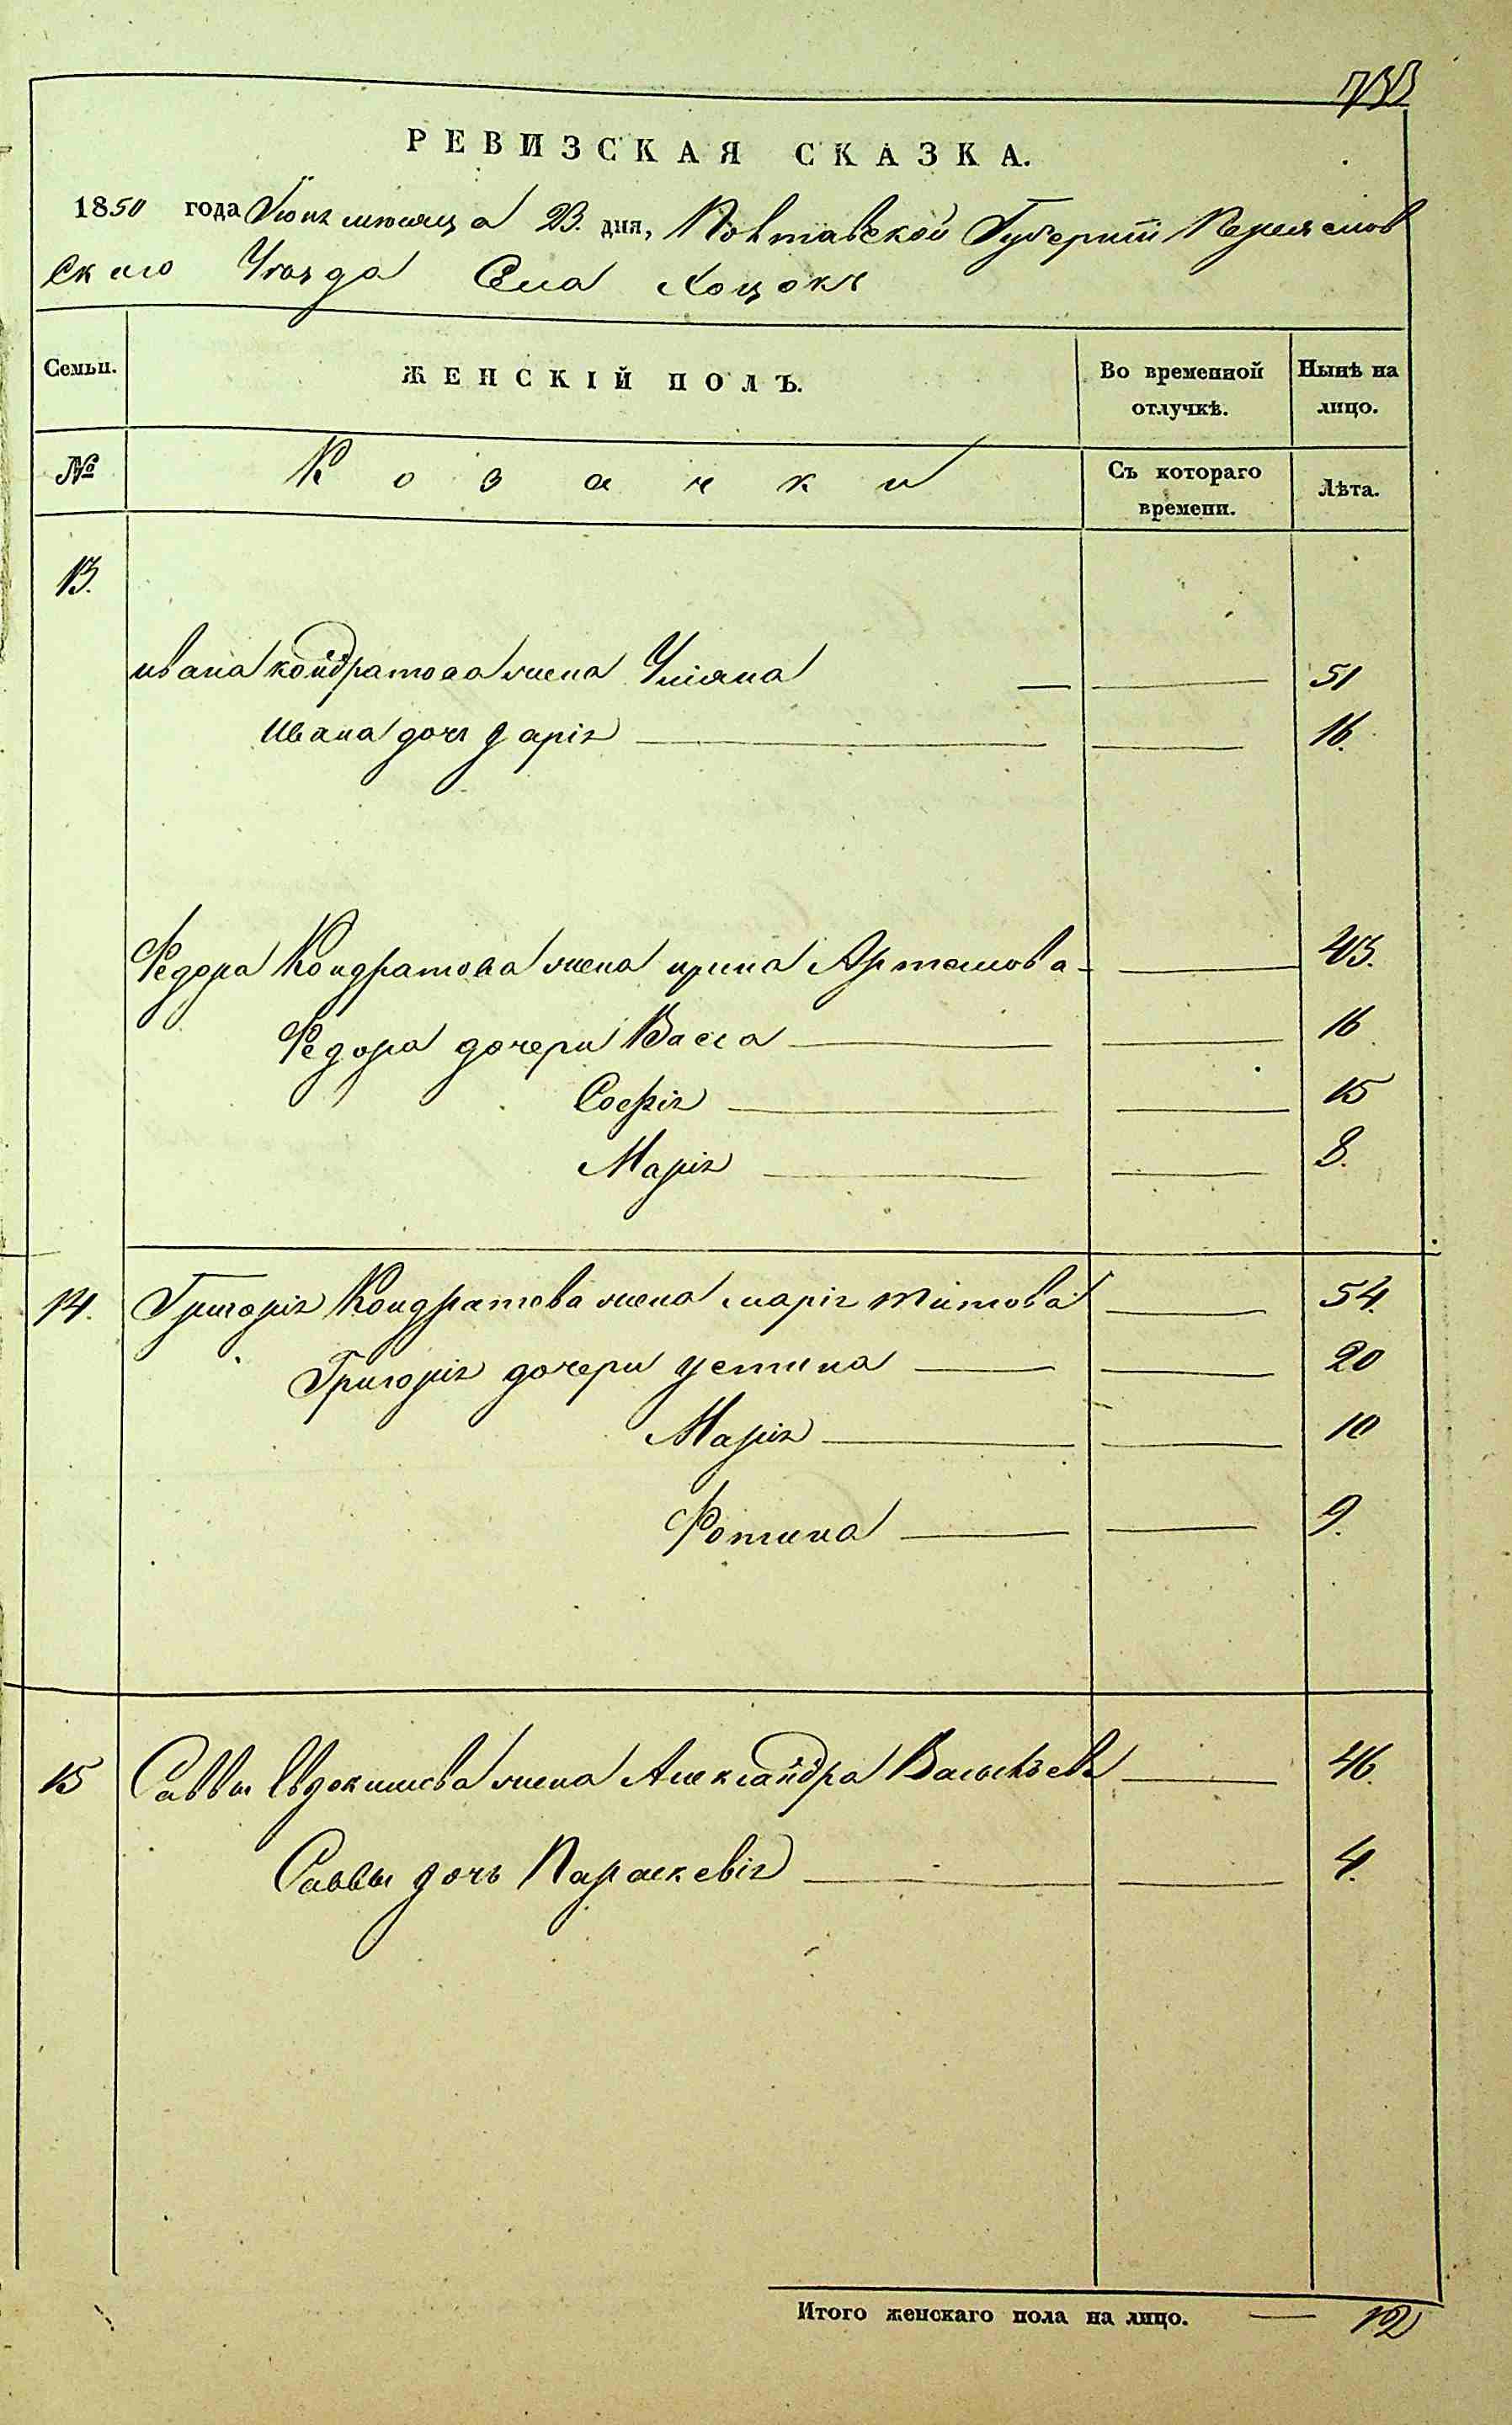 РЕВИЗСКАЯ СКАЗКА.
1850 года Іюня месяца 23. дня, Полтавской Губерніи Переяслов
Скаго Уезда Села Хоцокъ
Семьи.
ЖЕНСКІЙ ПОЛЪ.
Во временной отлучкѣ.
Нынѣ на лицо.
№
Козачки
Съ котораго времени.
Лѣта.
13.
ивана кондратова жена Уліяна 51
Ивана доч Дарія 16.
Федора Кондратова жена ирина Артемова 43.
Федора дочери Васса 16
Софія 15
Марія 8.
14. Григорія Кондратова жена марія титова 54.
Григорія дочери устина 20
Марія 10
Фотина 9.
15 Саввы Евдокимова жена Александра Васильева 46.
Саввы дочь Параскевія 4.
Итого женскаго пола на лицо. 12